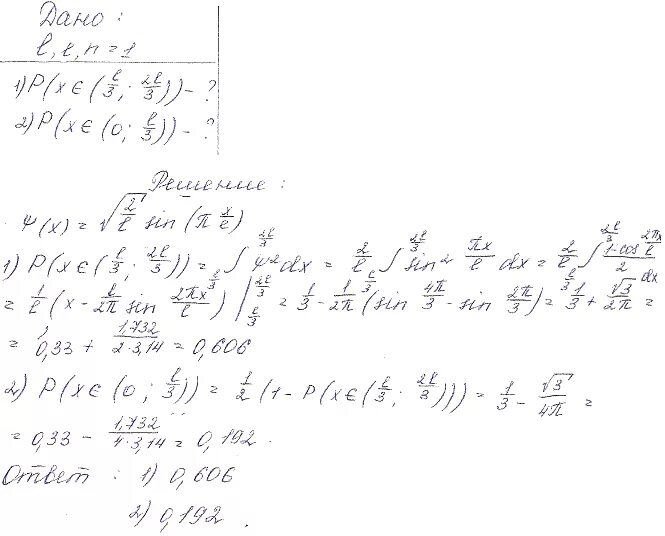 Дано:
l, l, n = 1
1) P(x ∈ (l/3; 2l/3)) - ?
2) P(x ∈ (0; l/3)) - ?
Решение:
Ψ(x) = √(2/l) sin(π x/l)
1) P(x ∈ (l/3; 2l/3)) = ∫_{l/3}^{2l/3} Ψ² dx = 2/l ∫_{l/3}^{2l/3} sin² πx/l dx = 2/l ∫_{l/3}^{2l/3} (1-cos 2πx/l)/2 dx
= 1/l (x - l/2π sin 2πx/l) |_{l/3}^{2l/3} = 1/3 - 1/2π (sin 4π/3 - sin 2π/3) = 1/3 + √3/2π =
= 0,33 + 1,732/(2·3,14) = 0,606
2) P(x ∈ (0; l/3)) = 1/2 (1 - P(x ∈ (l/3; 2l/3))) = 1/3 - √3/4π =
= 0,33 - 1,732/(4·3,14) = 0,192.
Ответ: 1) 0,606
2) 0,192.